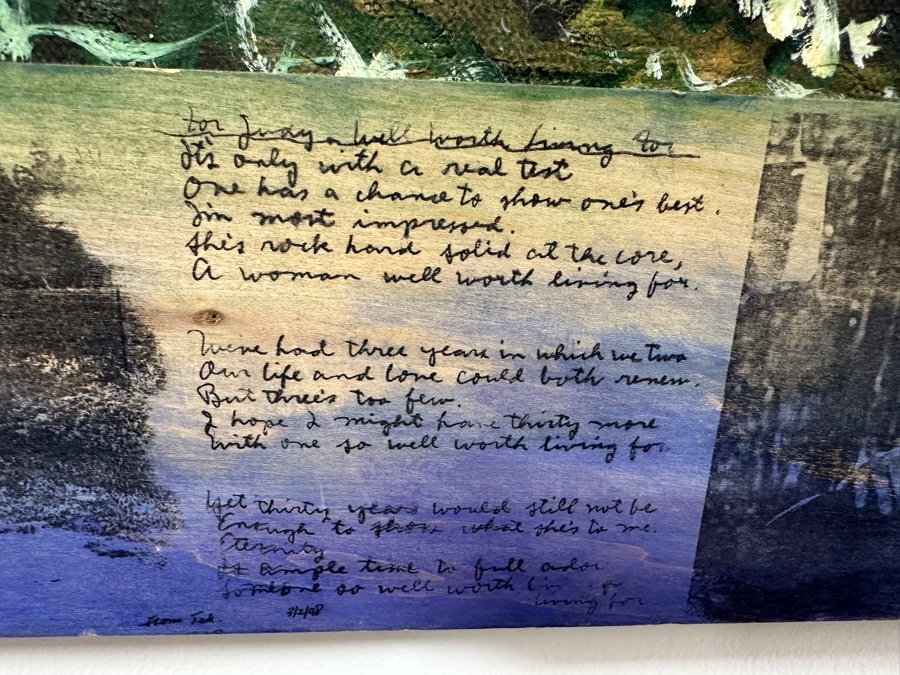 For Judy a Well Worth Living For
It's only with a real test
One has a chance to show one's best.
I'm most impressed.
She's rock hard solid at the core,
A woman well worth living for.
We've had three years in which we two
Our life and love could both renew.
But three's too few.
I hope I might have thirty more
With one so well worth living for.
Yet thirty years would still not be
Enough to show what she's to me.
Eternity
Is ample time to full adore
Someone so well worth
living for
From Ted.
3/2/98